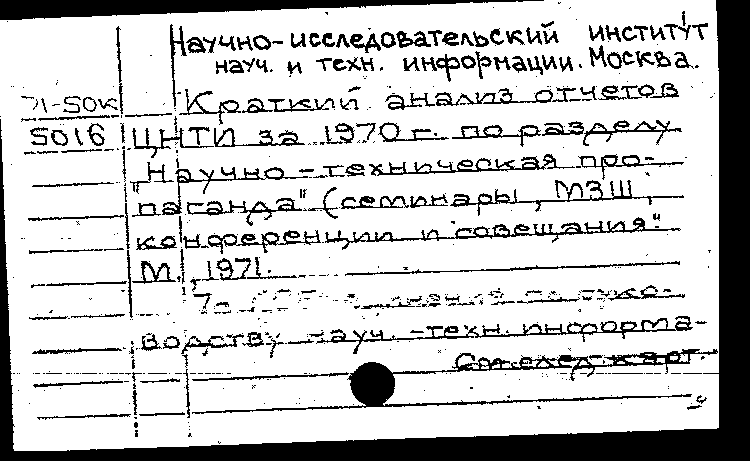 Научно-исследовательский институт
науч. и техн. информации. Москва.
71-50К Краткий анализ отчетов
5016 ЦНТИ за 1970 г. по разделу
„Научно-техническая про-
паганда" (семинары, МЗШ,
конференции и совещания".
М., 1971.
по руко-
водству науч.-техн. информа-
См. след. карт.